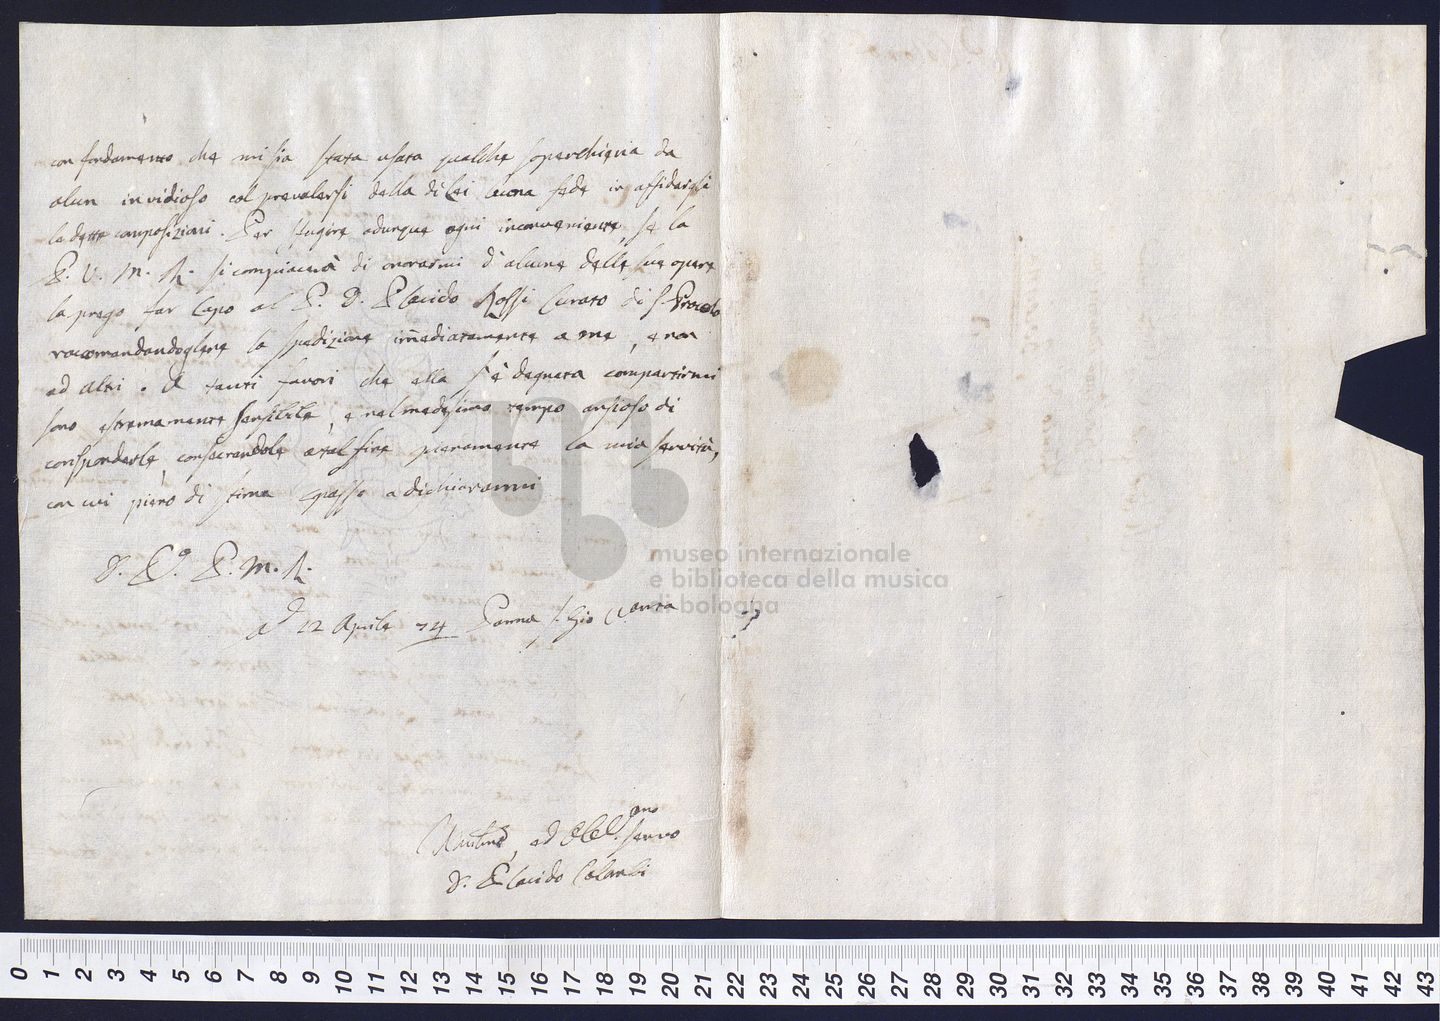 con fondamento che mi sia stata usata qualche soperchieria da
alcun invidioso col prevalersi della di Lei buona fede in affidargli
le dette composizioni. Per sfugire adunque ogni inconveniente, se la
P. V. M. R. si compiacerà di onorarmi d'alcune delle sue opere
la prego far Capo al P. D. Placido Rossi Curato di S. Procolo
racomandandogliene la spedizione immediatamente a me, e non
ad altri. A tanti favori che ella s'è degnata compartirmi
sono estremamente sensibile, e nel medesimo tempo ansioso di
corisponderle, consecrandole a tal fine pienamente la mia servitù,
con cui pieno di stima passo a dichiararmi
D. V. P. M. R.
A dì 12 Aprile 74 Parma S. Gio
ad servo
D. Placido
museo internazionale
e biblioteca della musica
di bologna
0 1 2 3 4 5 6 7 8 9 10 11 12 13 14 15 16 17 18 19 20 21 22 23 24 25 26 27 28 29 30 31 32 33 34 35 36 37 38 39 40 41 42 43